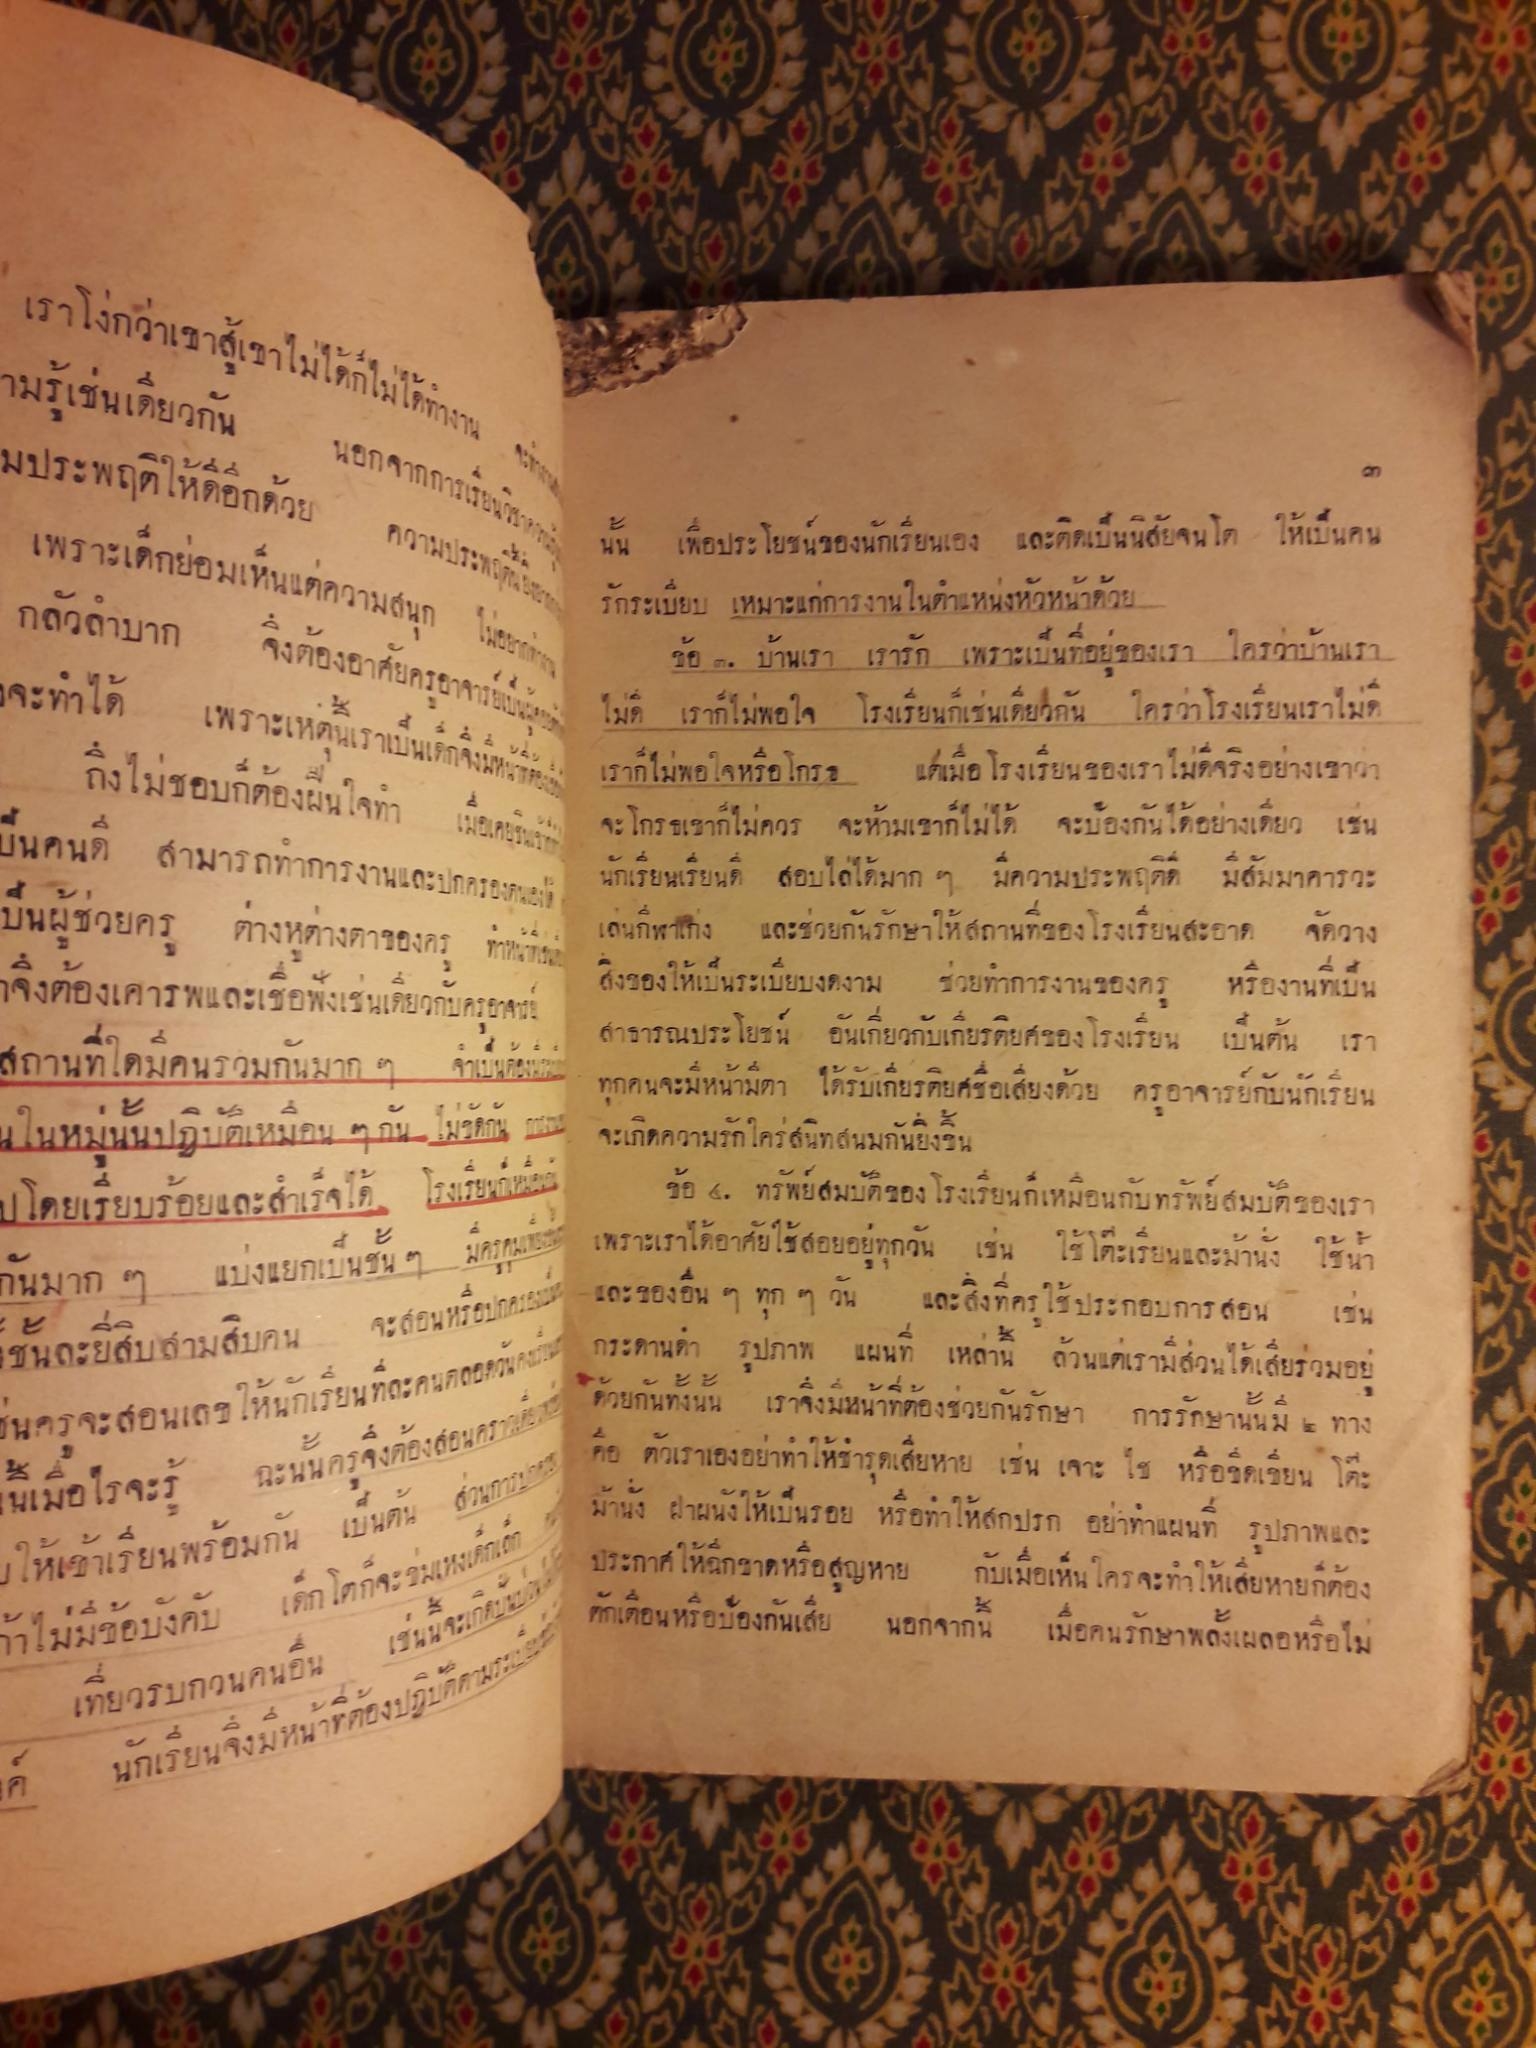 เราโง่กว่าเขาสู้เขาไม่ได้ก็ไม่ได้ทำงาน
ามรู้เช่นเดียวกัน นอกจากการเรียนวิชาความรู้
มประพฤติให้ดีอีกด้วย
เพราะเด็กย่อมเห็นแต่ความสนุก ไม่อยากทำงาน
กลัวลำบาก จึงต้องอาศัยครูอาจารย์เป็นผู้
งจะทำได้ เพราะเหตุนี้เราเป็นเด็กจึงมีหน้าที่ต้อง
ถึงไม่ชอบก็ต้องฝืนใจทำ
ป็นคนดี สามารถทำการงานและปกครองตนเองได้
ป็นผู้ช่วยครู ต่างหูต่างตาของครู
จึงต้องเคารพและเชื่อฟังเช่นเดียวกับครูอาจารย์
สถานที่ใดมีคนรวมกันมาก ๆ จำเป็นต้องมี
นในหมู่นั้นปฏิบัติเหมือน ๆ กัน ไม่ขัดกัน
ปโดยเรียบร้อยและสำเร็จได้ โรงเรียนก็เหมือนกัน
กันมาก ๆ แบ่งแยกเป็นชั้น ๆ
ชั้นละยี่สิบสามสิบคน จะสอนหรือปกครอง
ช่นครูจะสอนเลขให้นักเรียนทีละคนตลอดวัน
เมื่อไรจะรู้ ฉะนั้นครูจึงต้องสอนคราวเดียว
ให้เข้าเรียนพร้อมกัน เป็นต้น ส่วนการปกครอง
ถ้าไม่มีข้อบังคับ เด็กโตก็จะข่มเหงเด็กเล็ก
เที่ยวรบกวนคนอื่น เช่นนี้จะเกิดปั่นป่วน
นักเรียนจึงมีหน้าที่ต้องปฏิบัติตามระเบียบ
๓
นั้น เพื่อประโยชน์ของนักเรียนเอง และติดเป็นนิสัยจนโต ให้เป็นคน
รักระเบียบ เหมาะแก่การงานในตำแหน่งหัวหน้าด้วย
ข้อ ๓. บ้านเรา เรารัก เพราะเป็นที่อยู่ของเรา ใครว่าบ้านเรา
ไม่ดี เราก็ไม่พอใจ โรงเรียนก็เช่นเดียวกัน ใครว่าโรงเรียนเราไม่ดี
เราก็ไม่พอใจหรือโกรธ แต่เมื่อโรงเรียนของเราไม่ดีจริงอย่างเขาว่า
จะโกรธเขาก็ไม่ควร จะห้ามเขาก็ไม่ได้ จะป้องกันได้อย่างเดียว เช่น
นักเรียนเรียนดี สอบไล่ได้มาก ๆ มีความประพฤติดี มีสัมมาคารวะ
เล่นกีฬาเก่ง และช่วยกันรักษาให้สถานที่ของโรงเรียนสะอาด จัดวาง
สิ่งของให้เป็นระเบียบงดงาม ช่วยทำการงานของครู หรืองานที่เป็น
สาธารณประโยชน์ อันเกี่ยวกับเกียรติยศของโรงเรียน เป็นต้น เรา
ทุกคนจะมีหน้ามีตา ได้รับเกียรติยศชื่อเสียงด้วย ครูอาจารย์กับนักเรียน
จะเกิดความรักใคร่สนิทสนมกันยิ่งขึ้น
ข้อ ๔. ทรัพย์สมบัติของโรงเรียนก็เหมือนกับทรัพย์สมบัติของเรา
เพราะเราได้อาศัยใช้สอยอยู่ทุกวัน เช่น ใช้โต๊ะเรียนและม้านั่ง ใช้น้ำ
และของอื่น ๆ ทุก ๆ วัน และสิ่งที่ครูใช้ประกอบการสอน เช่น
กระดานดำ รูปภาพ แผนที่ เหล่านี้ ล้วนแต่เรามีส่วนได้เสียร่วมอยู่
ด้วยกันทั้งนั้น เราจึงมีหน้าที่ต้องช่วยกันรักษา การรักษานั้นมี ๒ ทาง
คือ ตัวเราเองอย่าทำให้ชำรุดเสียหาย เช่น เจาะ ไช หรือขีดเขียน โต๊ะ
ม้านั่ง ฝาผนังให้เป็นรอย หรือทำให้สกปรก อย่าทำแผนที่ รูปภาพและ
ประกาศให้ฉีกขาดหรือสูญหาย กับเมื่อเห็นใครจะทำให้เสียหายก็ต้อง
ตักเตือนหรือป้องกันเสีย นอกจากนี้ เมื่อคนรักษาพลั้งเผลอหรือไม่